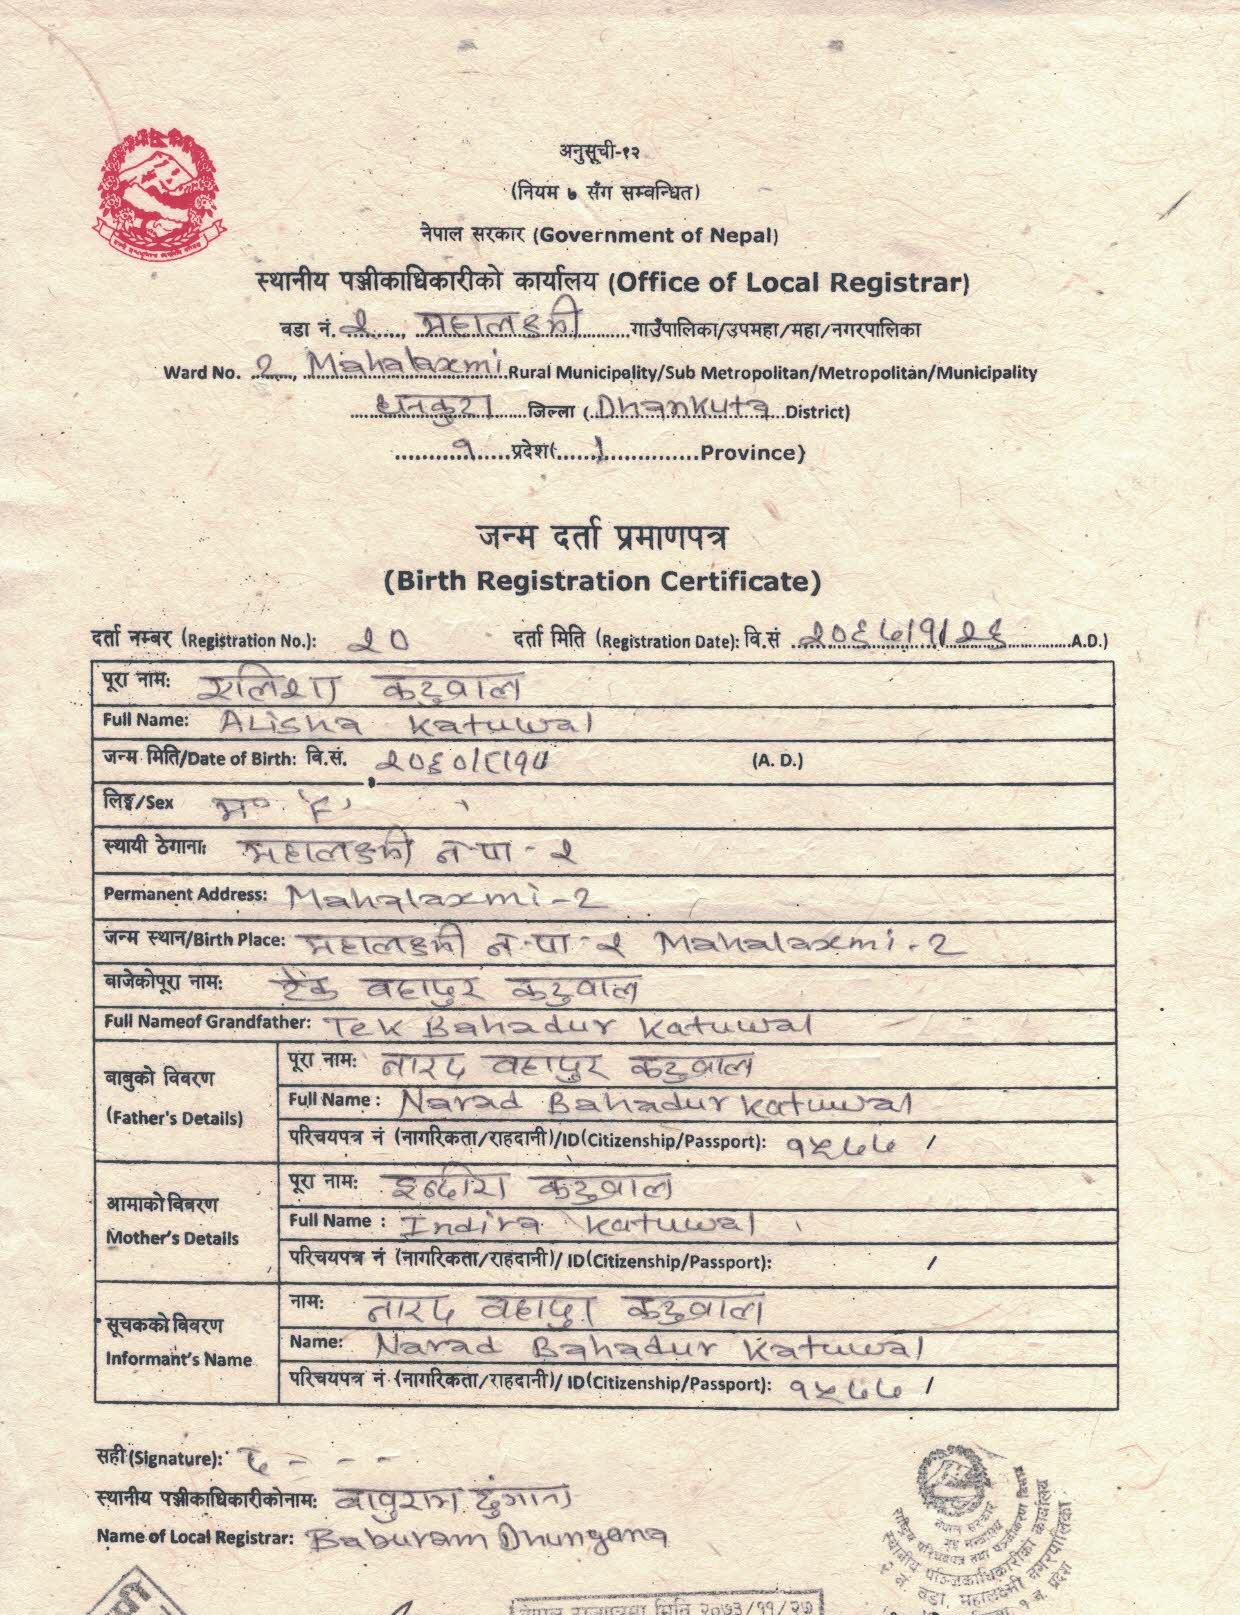 अनुसूची-१२
(नियम ७ सँग सम्बन्धित)
नेपाल सरकार (Government of Nepal)
स्थानीय पञ्जीकाधिकारीको कार्यालय (Office of Local Registrar)
वडा नं. २, महालक्ष्मी गाउँपालिका/उपमहा/महा/नगरपालिका
Ward No. 2, Mahalaxmi Rural Municipality/Sub Metropolitan/Metropolitan/Municipality
धनकुटा जिल्ला (Dhankuta District)
१ प्रदेश(1 Province)
जन्म दर्ता प्रमाणपत्र
(Birth Registration Certificate)
दर्ता नम्बर (Registration No.): २० दर्ता मिति (Registration Date): वि.सं २०६७/१/२६ A.D.)
पूरा नाम: एलिशा कटुवाल
Full Name: Alisha Katuwal
जन्म मिति/Date of Birth: वि.सं. २०६०/८/१५ (A. D.)
लिङ्ग/Sex म० 'F'
स्थायी ठेगाना: महालक्ष्मी न-पा-२
Permanent Address: Mahalaxmi-2
जन्म स्थान/Birth Place: महालक्ष्मी न-पा-२ Mahalaxmi-2
बाजेकोपूरा नाम: टेक बहादुर कटुवाल
Full Nameof Grandfather: Tek Bahadur Katuwal
बाबुको विवरण
(Father's Details)
पूरा नाम: नारद बहादुर कटुवाल
Full Name : Narad Bahadur Katuwal
परिचयपत्र नं (नागरिकता/राहदानी)/ID(Citizenship/Passport): १५७७ /
आमाको विवरण
Mother's Details
पूरा नाम: इन्दीरा कटुवाल
Full Name : Indira Katuwal
परिचयपत्र नं (नागरिकता/राहदानी)/ ID(Citizenship/Passport): /
सूचकको विवरण
Informant's Name
नाम: नारद बहादुर कटुवाल
Name: Narad Bahadur Katuwal
परिचयपत्र नं (नागरिकता/राहदानी)/ ID(Citizenship/Passport): १५७७ /
सही (Signature):
स्थानीय पञ्जीकाधिकारीकोनाम: बाबुराम ढुंगाना
Name of Local Registrar: Baburam Dhungana
नेपाल सरकार
गृह मन्त्रालय
राष्ट्रिय परिचयपत्र तथा पञ्जीकरण विभाग
स्थानीय पञ्जिकाधिकारीको कार्यालय
२ नं. वडा, महालक्ष्मी नगरपालिका
१ नं. प्रदेश
नेपाल राजपत्रमा मिति २०७३/११/२७